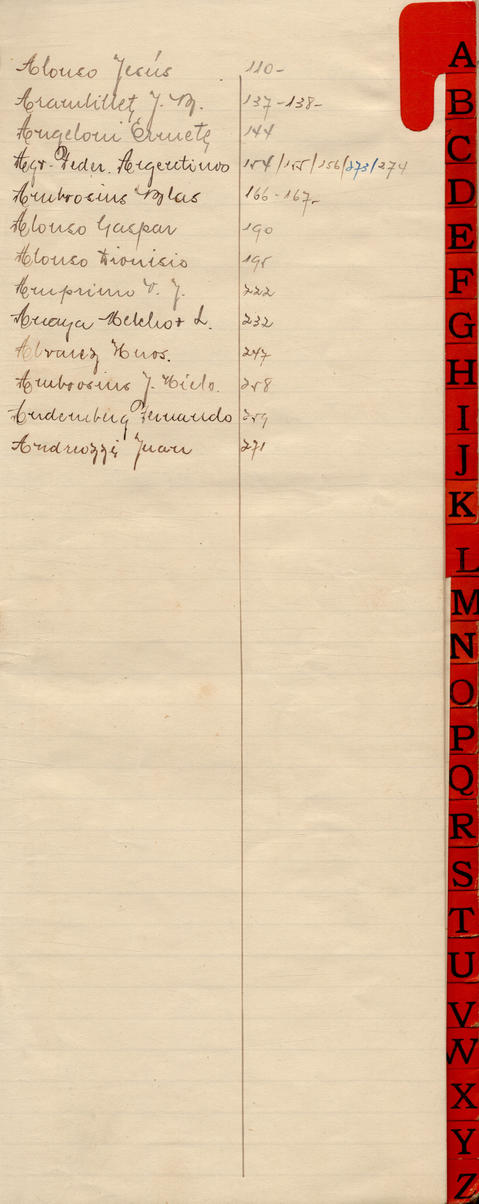 Alonso Jesús 110-
Arambillet J. M. 137-138-
Angeloni Ermete 144
Agr. Feder. Argentinos 154/155/156/273/274
Ambrosius Blas 166-167-
Alonso Gaspar 190
Alonso Dionisio 195
Amprimo V. J. 222
Anaya Melchor L. 232
Alvarez Hnos. 247
Ambrosius J. Niclo. 258
Andemberg Fernando 259
Andreozzi Juan 271
A
B
C
D
E
F
G
H
I
J
K
L
M
N
O
P
Q
R
S
T
U
V
W
X
Y
Z